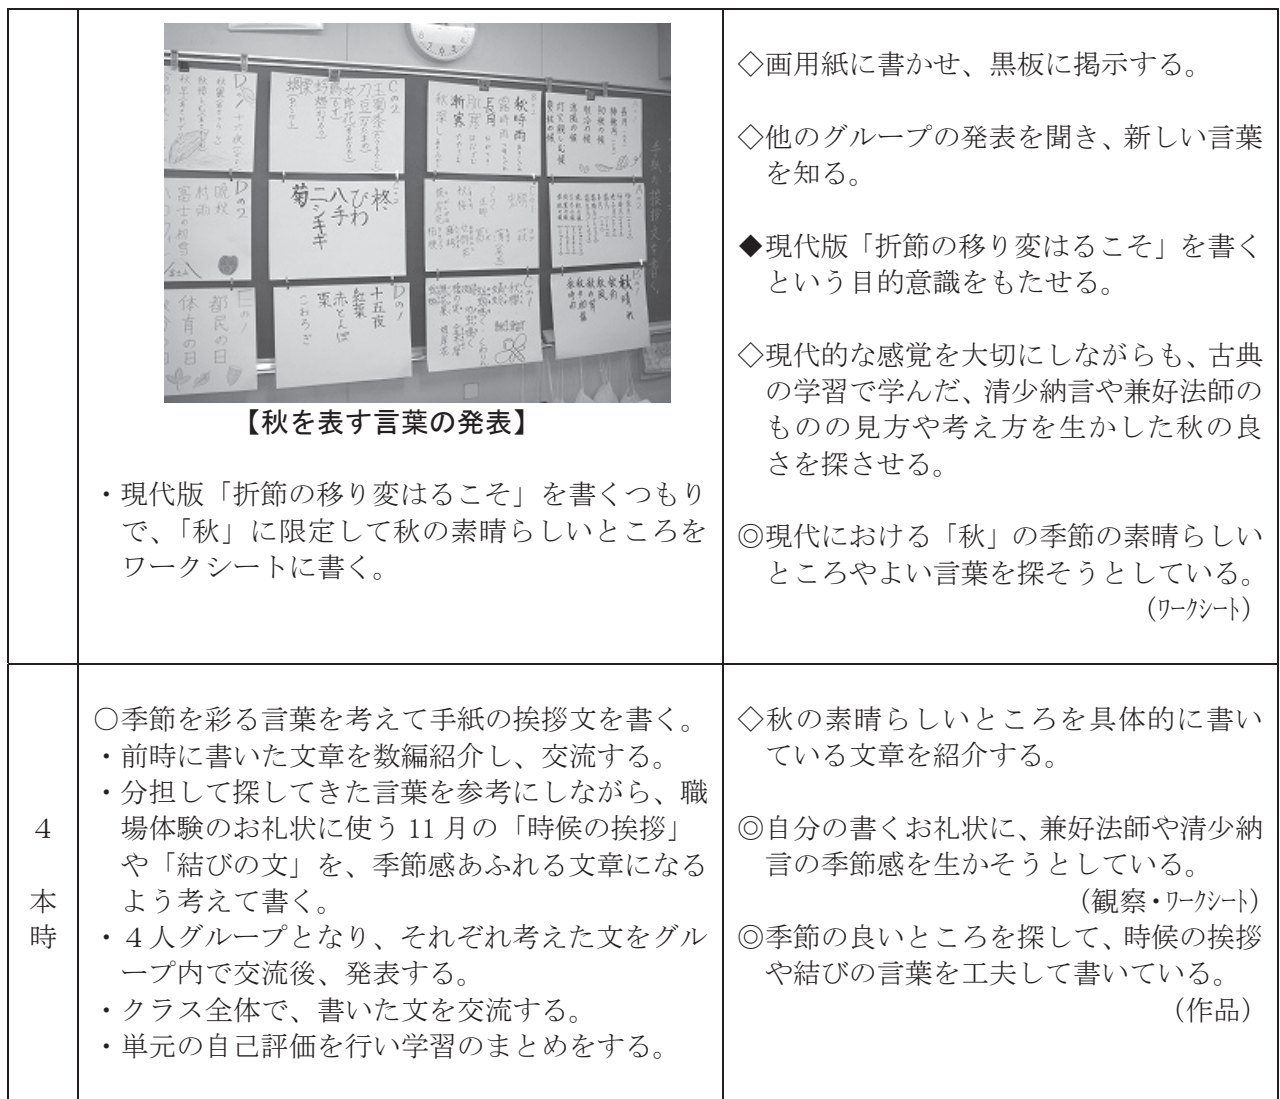 Cの2
玉蜀黍
刀豆
女郎花
秋時雨
長月
漸寒
Dの2
晩秋
村雨
富士の初雪
柊
びわ
八手
ニシキギ
菊
Dの1
十五夜
紅葉
赤とんぼ
栗
こおろぎ
Eの1
都民の日
体育の日
秋晴れ
【秋を表す言葉の発表】
・現代版「折節の移り変はるこそ」を書くつもり
で、「秋」に限定して秋の素晴らしいところを
ワークシートに書く。
◇画用紙に書かせ、黒板に掲示する。
◇他のグループの発表を聞き、新しい言葉
を知る。
◆現代版「折節の移り変はるこそ」を書く
という目的意識をもたせる。
◇現代的な感覚を大切にしながらも、古典
の学習で学んだ、清少納言や兼好法師の
ものの見方や考え方を生かした秋の良
さを探させる。
◎現代における「秋」の季節の素晴らしい
ところやよい言葉を探そうとしている。
(ワークシート)
4
本
時
○季節を彩る言葉を考えて手紙の挨拶文を書く。
・前時に書いた文章を数編紹介し、交流する。
・分担して探してきた言葉を参考にしながら、職
場体験のお礼状に使う 11 月の「時候の挨拶」
や「結びの文」を、季節感あふれる文章になる
よう考えて書く。
・４人グループとなり、それぞれ考えた文をグル
ープ内で交流後、発表する。
・クラス全体で、書いた文を交流する。
・単元の自己評価を行い学習のまとめをする。
◇秋の素晴らしいところを具体的に書い
ている文章を紹介する。
◎自分の書くお礼状に、兼好法師や清少納
言の季節感を生かそうとしている。
(観察・ワークシート)
◎季節の良いところを探して、時候の挨拶
や結びの言葉を工夫して書いている。
(作品)